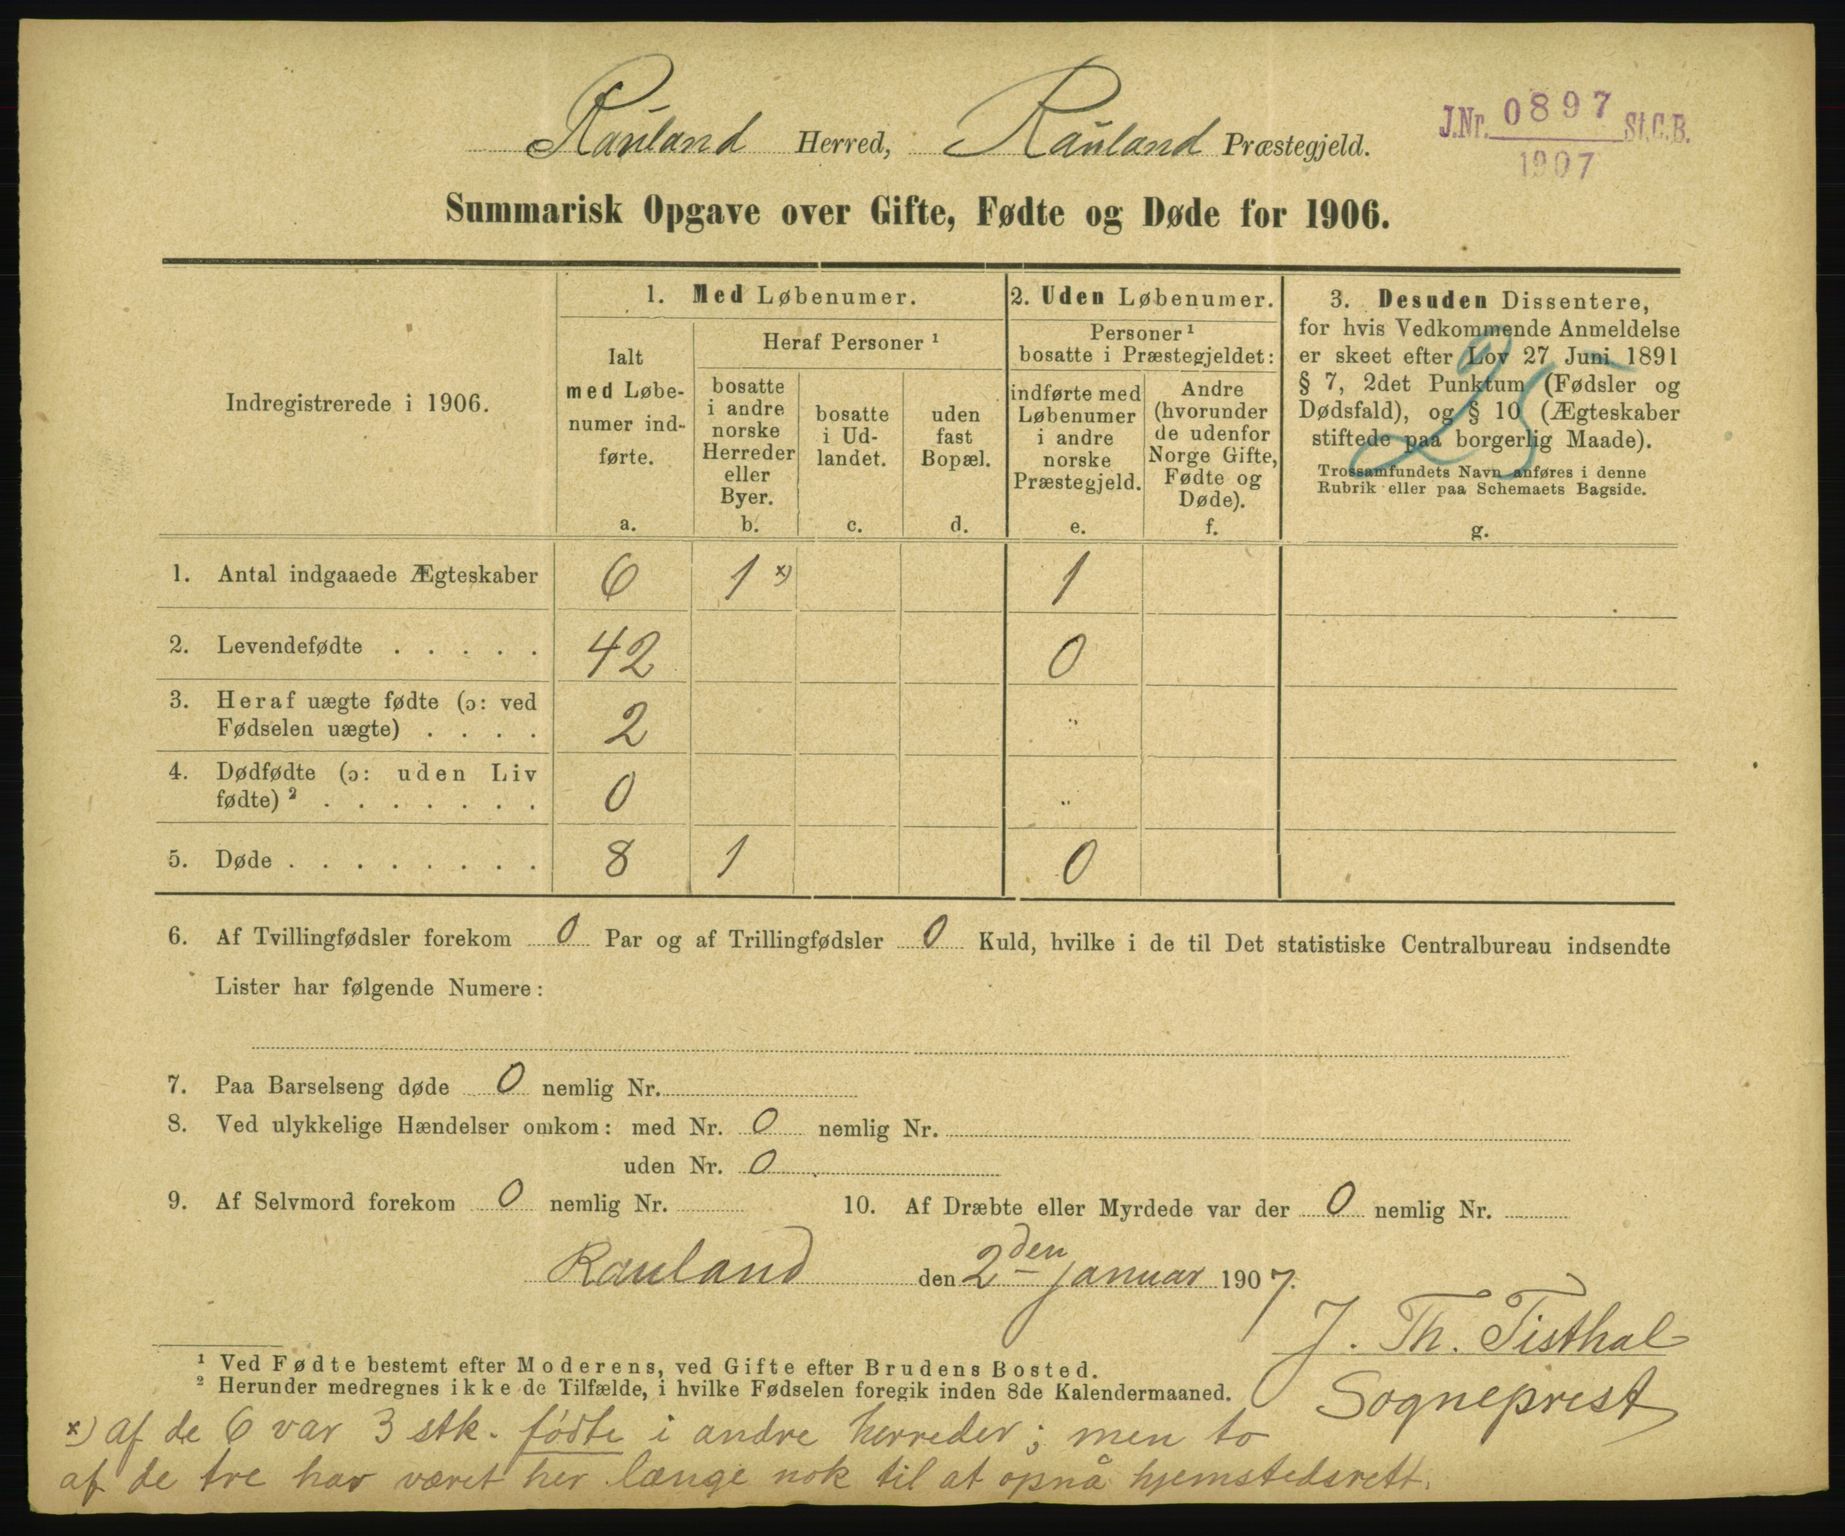 Rauland Herred, Rauland Præstegjeld.
J.Nr. 0897 St.C.B.
1907
Summarisk Opgave over Gifte, Fødte og Døde for 1906.
Indregistrerede i 1906.
1. Med Løbenumer.
Ialt
med Løbe-
numer ind-
førte.
a.
Heraf Personer ¹
bosatte
i andre
norske
Herreder
eller
Byer.
b.
bosatte
i Ud-
landet.
c.
uden
fast
Bopæl.
d.
2. Uden Løbenumer.
Personer ¹
bosatte i Præstegjeldet:
indførte med
Løbenumer
i andre
norske
Præstegjeld.
e.
Andre
(hvorunder
de udenfor
Norge Gifte,
Fødte og
Døde).
f.
3. Desuden Dissentere,
for hvis Vedkommende Anmeldelse
er skeet efter Lov 27 Juni 1891
§ 7, 2det Punktum (Fødsler og
Dødsfald), og § 10 (Ægteskaber
stiftede paa borgerlig Maade).
Trossamfundets Navn anføres i denne
Rubrik eller paa Schemaets Bagside.
g.
25
1. Antal indgaaede Ægteskaber 6 1 x) 1
2. Levendefødte . . . . . 42 0
3. Heraf uægte fødte (ɔ: ved
Fødselen uægte) . . . . 2 "
4. Dødfødte (ɔ: uden Liv
fødte) ² . . . . . . . 0 "
5. Døde . . . . . . . . 8 1 0
6. Af Tvillingfødsler forekom 0 Par og af Trillingfødsler 0 Kuld, hvilke i de til Det statistiske Centralbureau indsendte
Lister har følgende Numere:
7. Paa Barselseng døde 0 nemlig Nr.
8. Ved ulykkelige Hændelser omkom: med Nr. 0 nemlig Nr.
uden Nr. 0
9. Af Selvmord forekom 0 nemlig Nr. 10. Af Dræbte eller Myrdede var der 0 nemlig Nr.
Rauland den 2den Januar 1907.
J. Th. Tisthal
Sogneprest
¹ Ved Fødte bestemt efter Moderens, ved Gifte efter Brudens Bosted.
² Herunder medregnes ikke de Tilfælde, i hvilke Fødselen foregik inden 8de Kalendermaaned.
x) af de 6 var 3 stk. fødte i andre herreder; men to
af de tre har været her længe nok til at opnå hjemstedsrett.